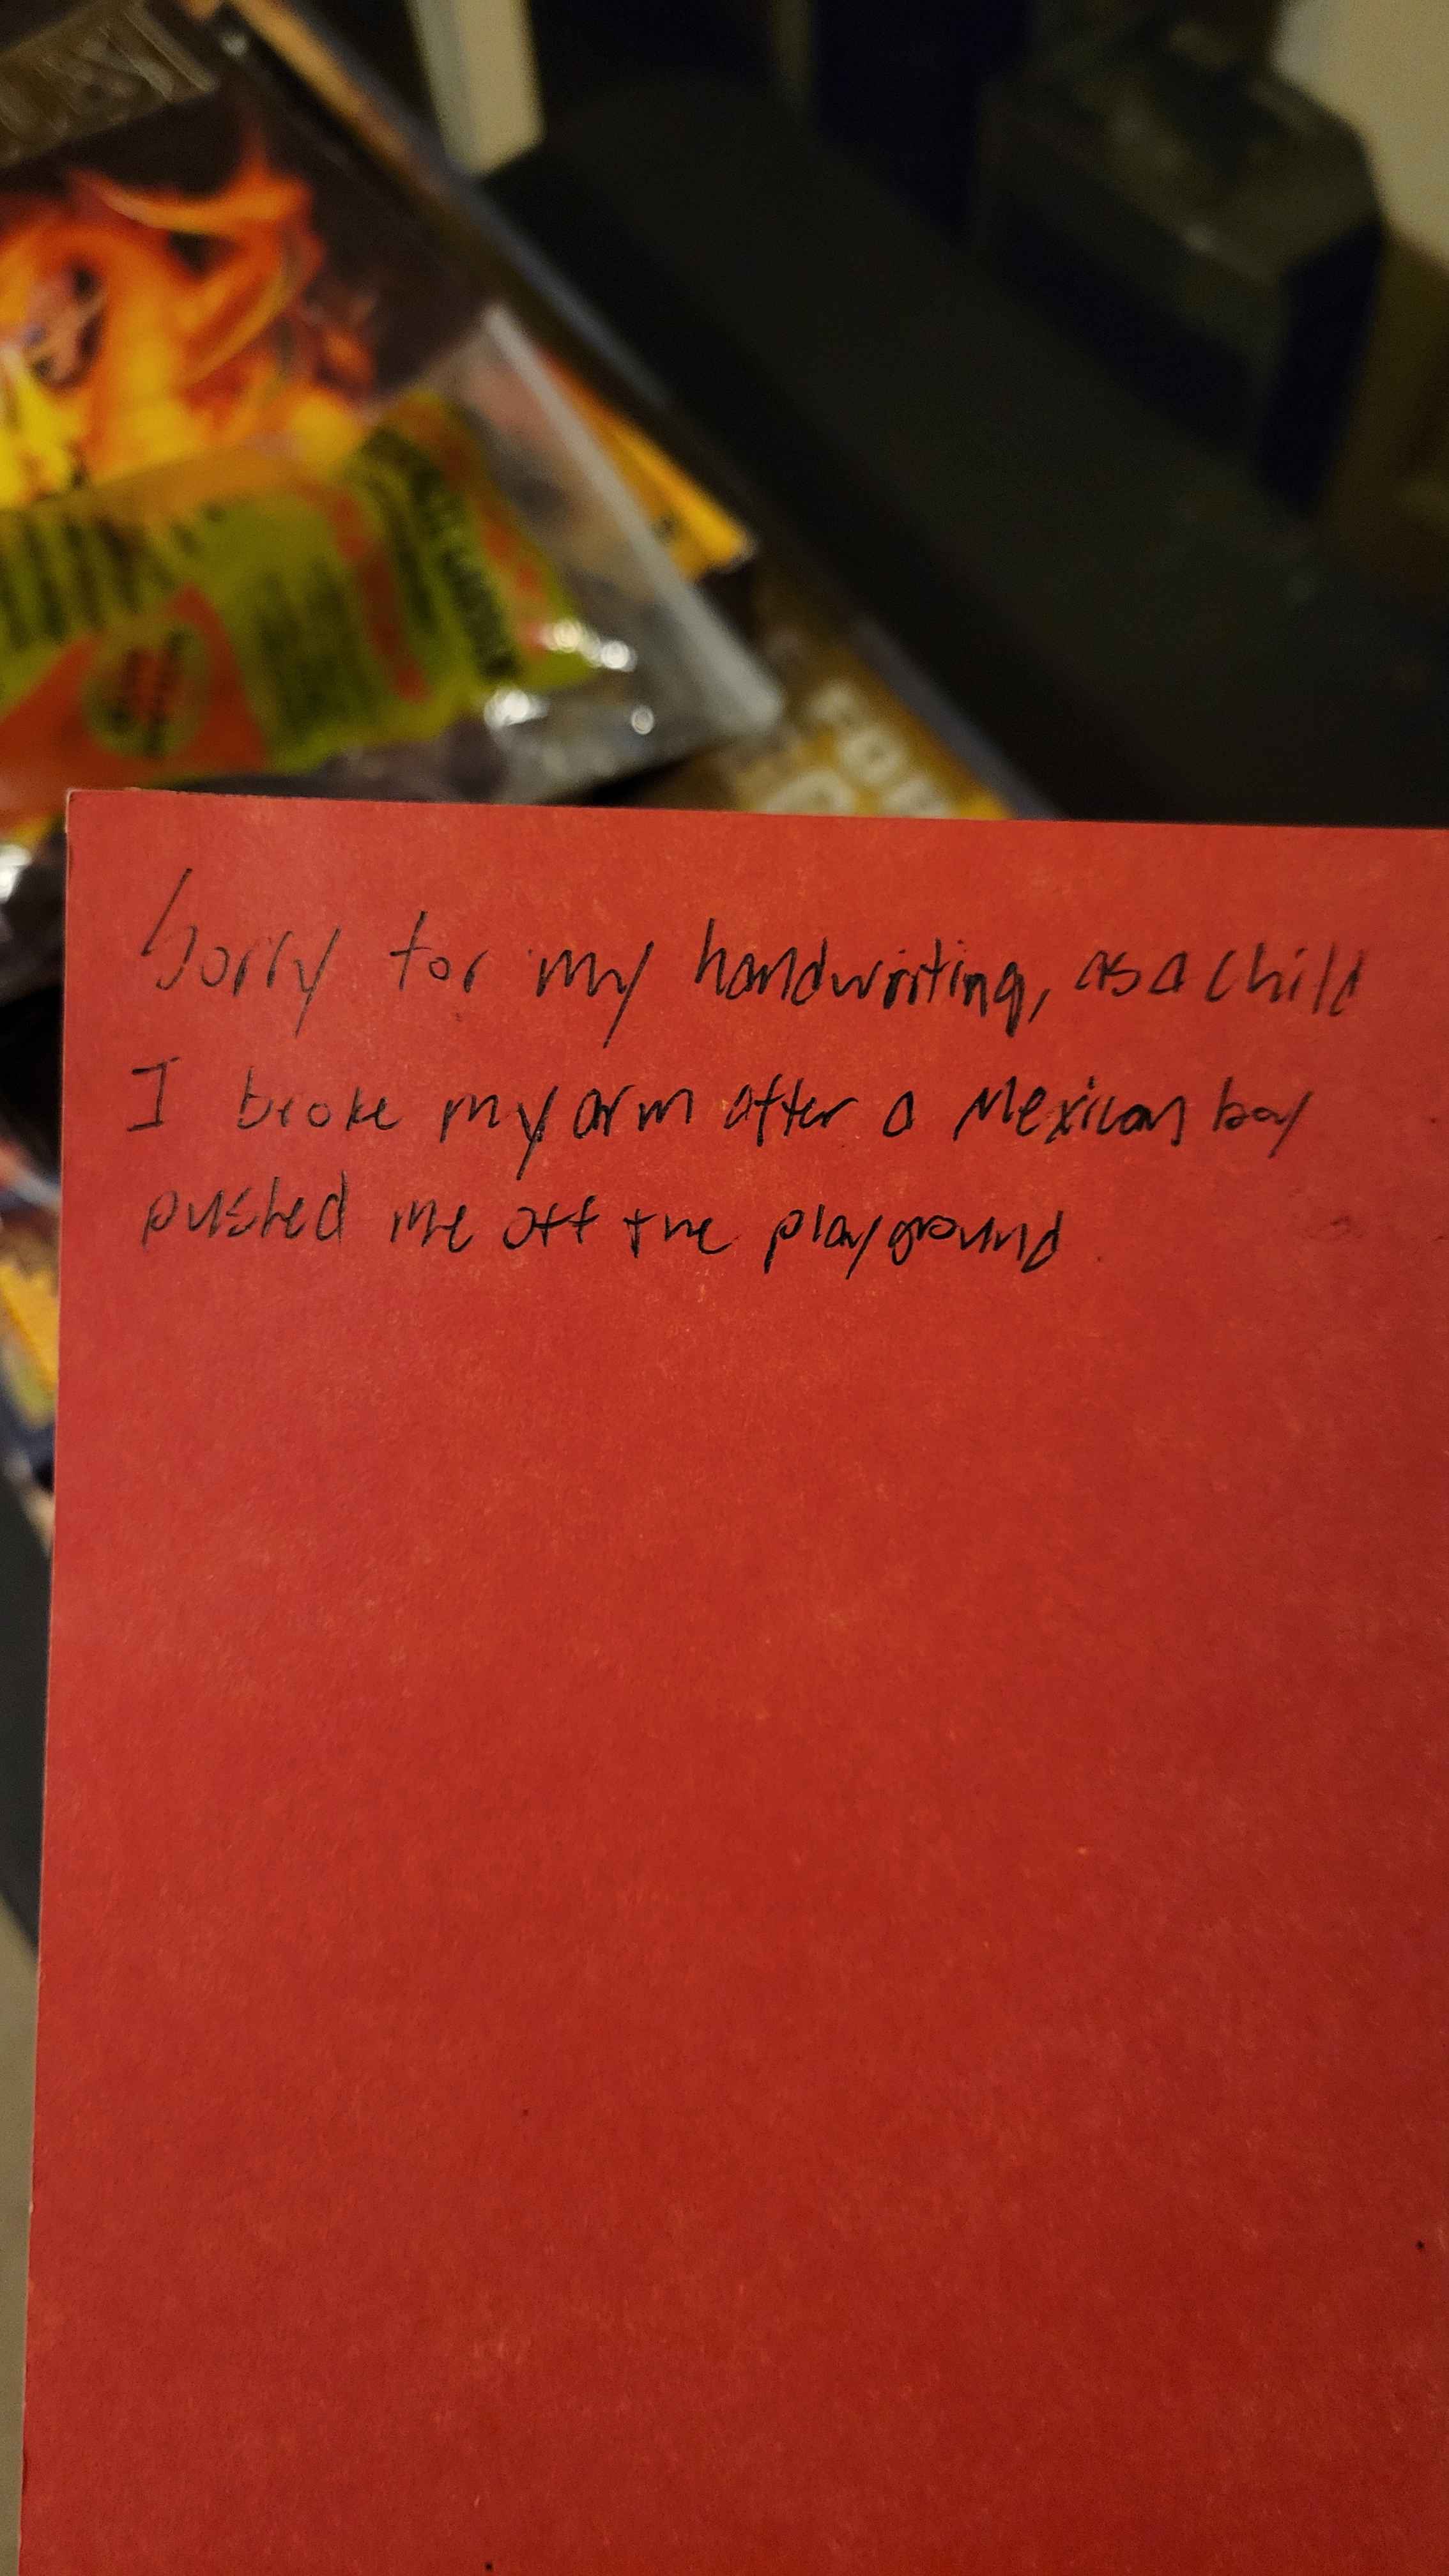 Sorry for my handwriting, as a child
I broke my arm after a Mexican boy
pushed me off the playground